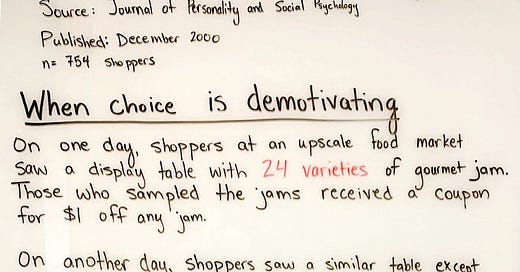 Source: Journal of Personality and Social Psychology
Published: December 2000
n= 754 Shoppers
When choice is demotivating
On one day, shoppers at an upscale food market
saw a display table with 24 varieties of gourmet jam.
Those who sampled the jams received a coupon
for $1 off any jam.
On another day, shoppers saw a similar table except